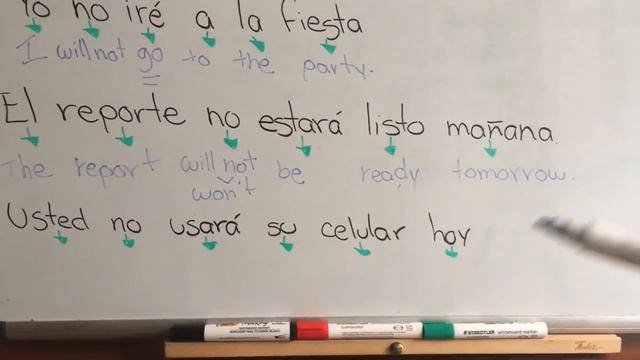 Yo no iré a la fiesta
I will not go to the party.
El reporte no estará listo mañana.
The report will not be ready tomorrow.
won't
Usted no usará su celular hoy
STAEDTLER
STAEDTLER